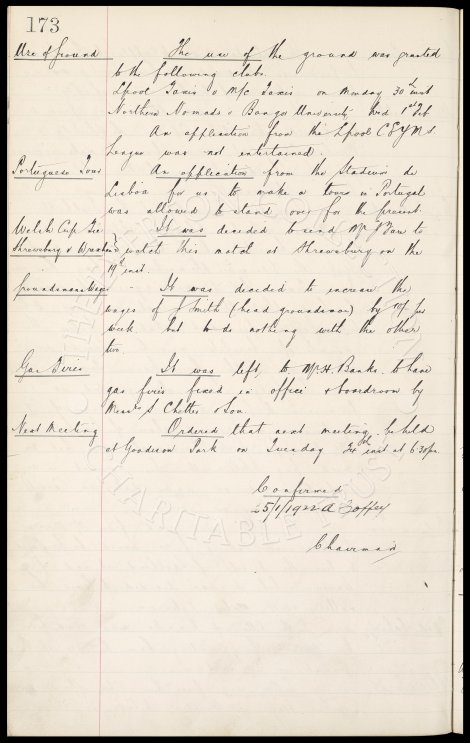 173
Use of Ground The use of the ground was granted
to the following clubs.
Lpool Taxis v M/c Taxis on Monday 30th inst
Northern Nomads v Bangor University Wed 1st Feb
An application from the Lpool C & Y M S.
League was not entertained.
Portuguese Tour An application from the Stadium de
Lisboa for us to make a tour in Portugal
was allowed to stand over for the present.
Welsh Cup Tie It was decided to send Mr to
Shrewsbury v Wrexham watch this match at Shrewsbury on the
19th inst.
Groundsmans Wages - It was decided to increase the
wages of J Smith (head groundsman) by 10/- per
week but to do nothing with the other
two.
Gas Fires It was left, to Mr H. Banks to have
gas fires fixed in office & boardroom by
Messrs S. & Son.
Next Meeting Ordered that next meeting be held
at Goodison Park on Tuesday 24th inst at 6.30pm.
Confirmed
25/1/1922 A Coffey
Chairman
CHARITABLE TRUST